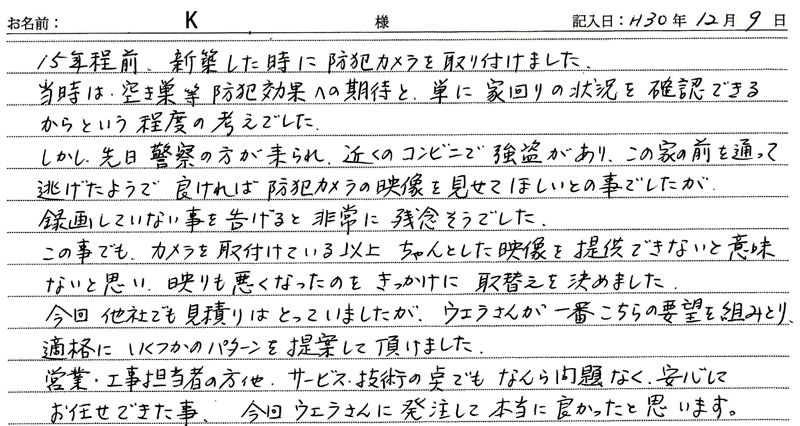 お名前： K 様 記入日：H30年12月9日
15年程前、新築した時に防犯カメラを取り付けました。
当時は、空き巣等防犯効果への期待と、単に家回りの状況を確認できる
からという程度の考えでした。
しかし、先日警察の方が来られ、近くのコンビニで強盗があり、この家の前を通って
逃げたようで良ければ防犯カメラの映像を見せてほしいとの事でしたが、
録画していない事を告げると非常に残念そうでした。
この事でも、カメラを取付けている以上ちゃんとした映像を提供できないと意味
ないと思い、映りも悪くなったのをきっかけに取替えを決めました。
今回他社でも見積りはとっていましたが、ウエラさんが一番こちらの要望を組みとり、
適格にいくつかのパターンを提案して頂けました。
営業・工事担当者の方他、サービス・技術の点でもなんら問題なく、安心して
お任せできた事、今回ウエラさんに発注して本当に良かったと思います。